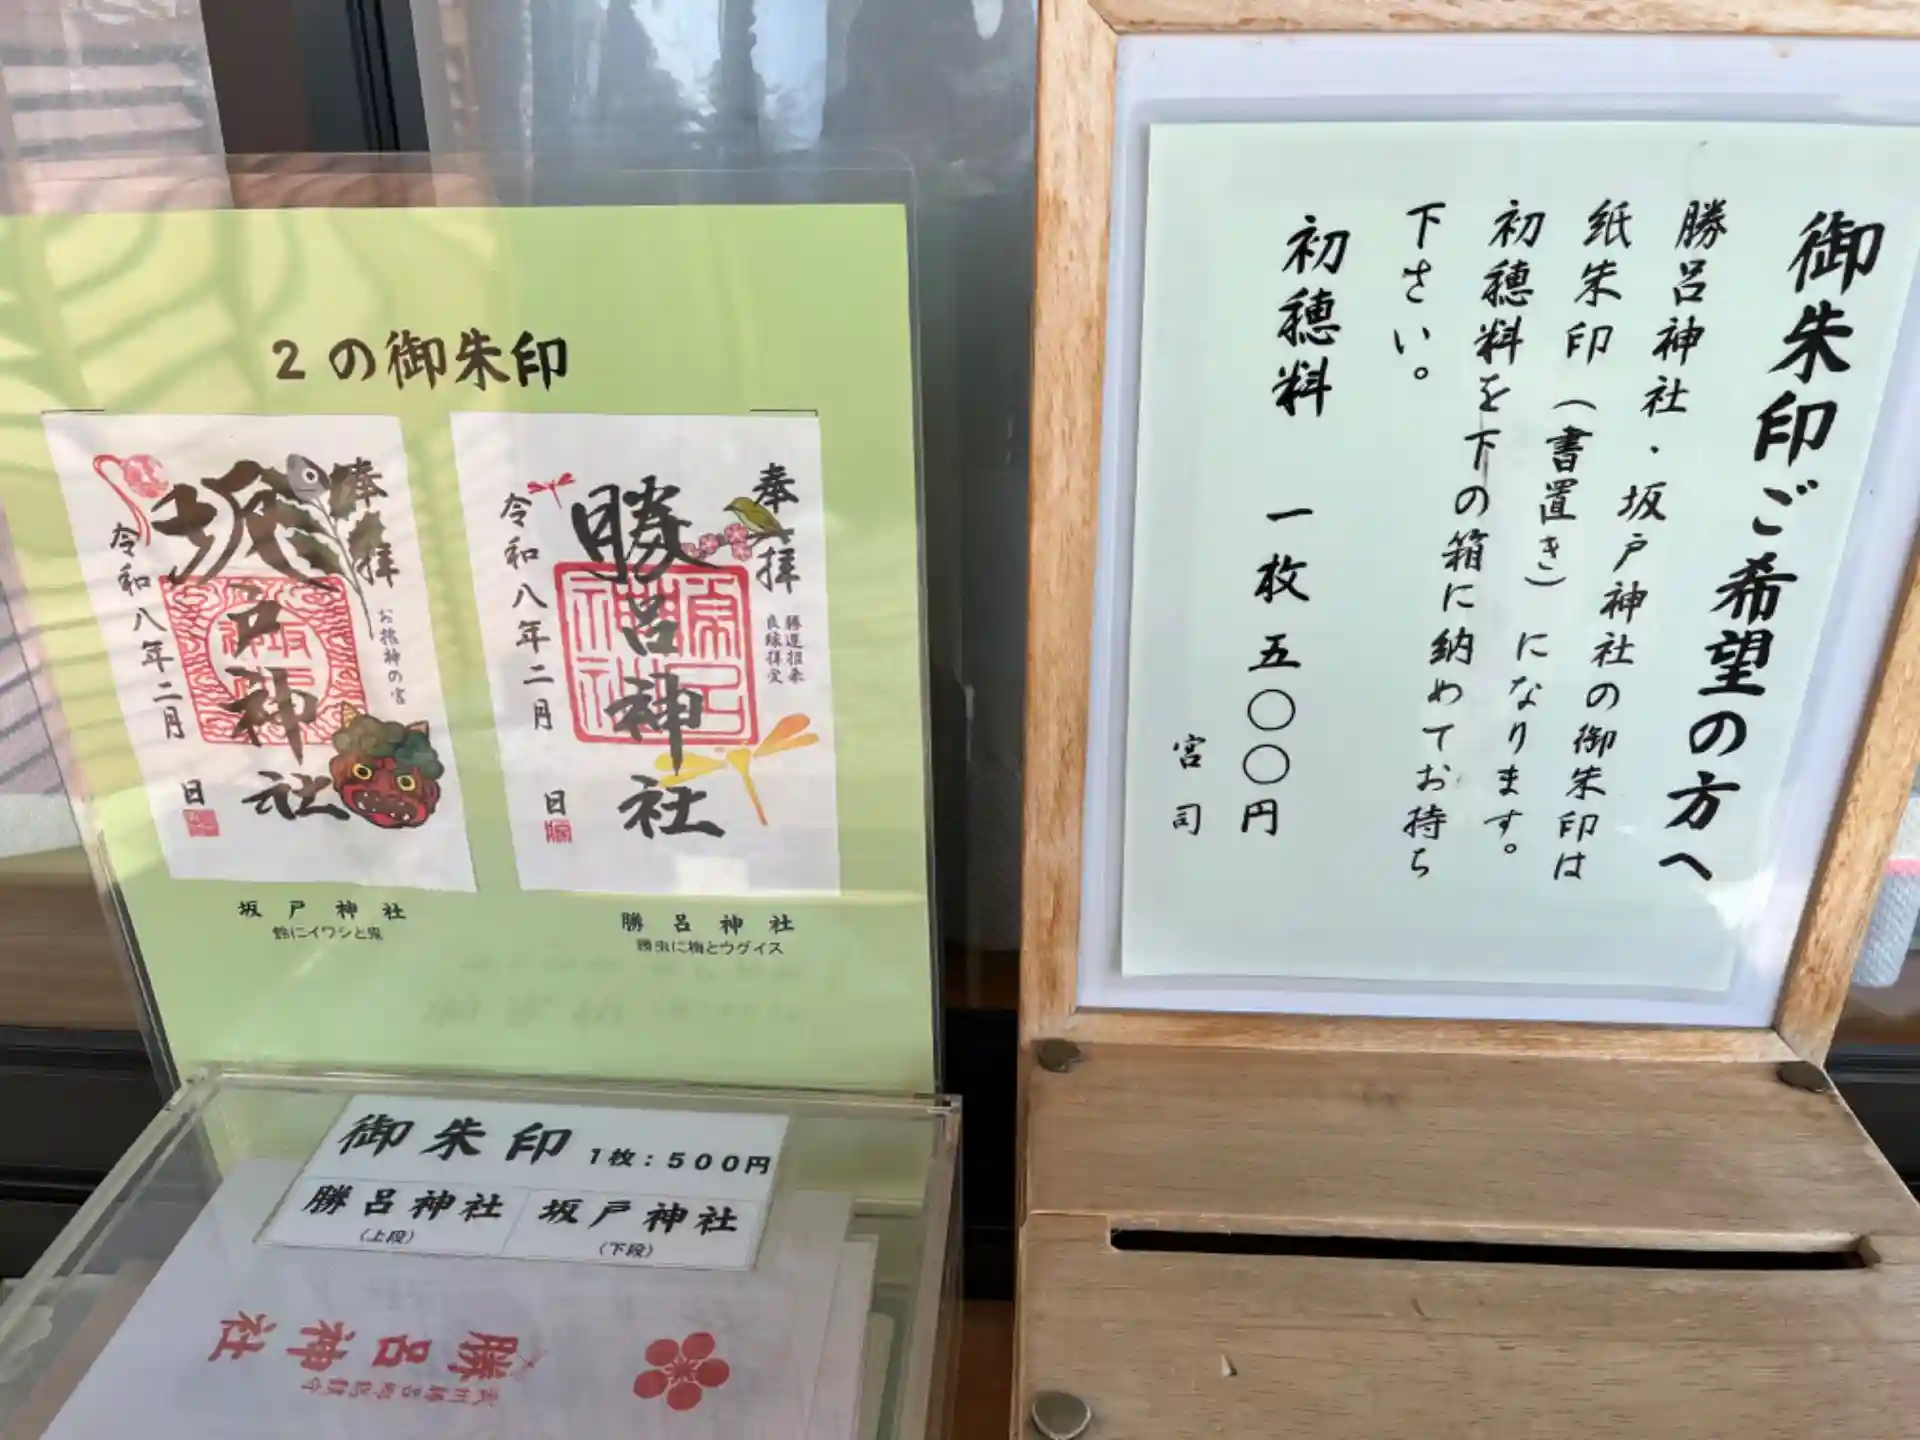 2の御朱印
奉拝
お諏神の宮
坂戸神社
令和八年二月 日
奉拝
勝運招来
良縁拝受
勝呂神社
令和八年二月 日
坂戸神社
鈴にイワシと鬼
勝呂神社
勝虫に梅とウグイス
御朱印 1枚：500円
勝呂神社
(上段)
坂戸神社
(下段)
勝呂神社
御朱印ご希望の方へ
勝呂神社・坂戸神社の御朱印は
紙朱印（書置き）になります。
初穂料を下の箱に納めてお持ち
下さい。
初穂料 一枚 五〇〇円
宮司